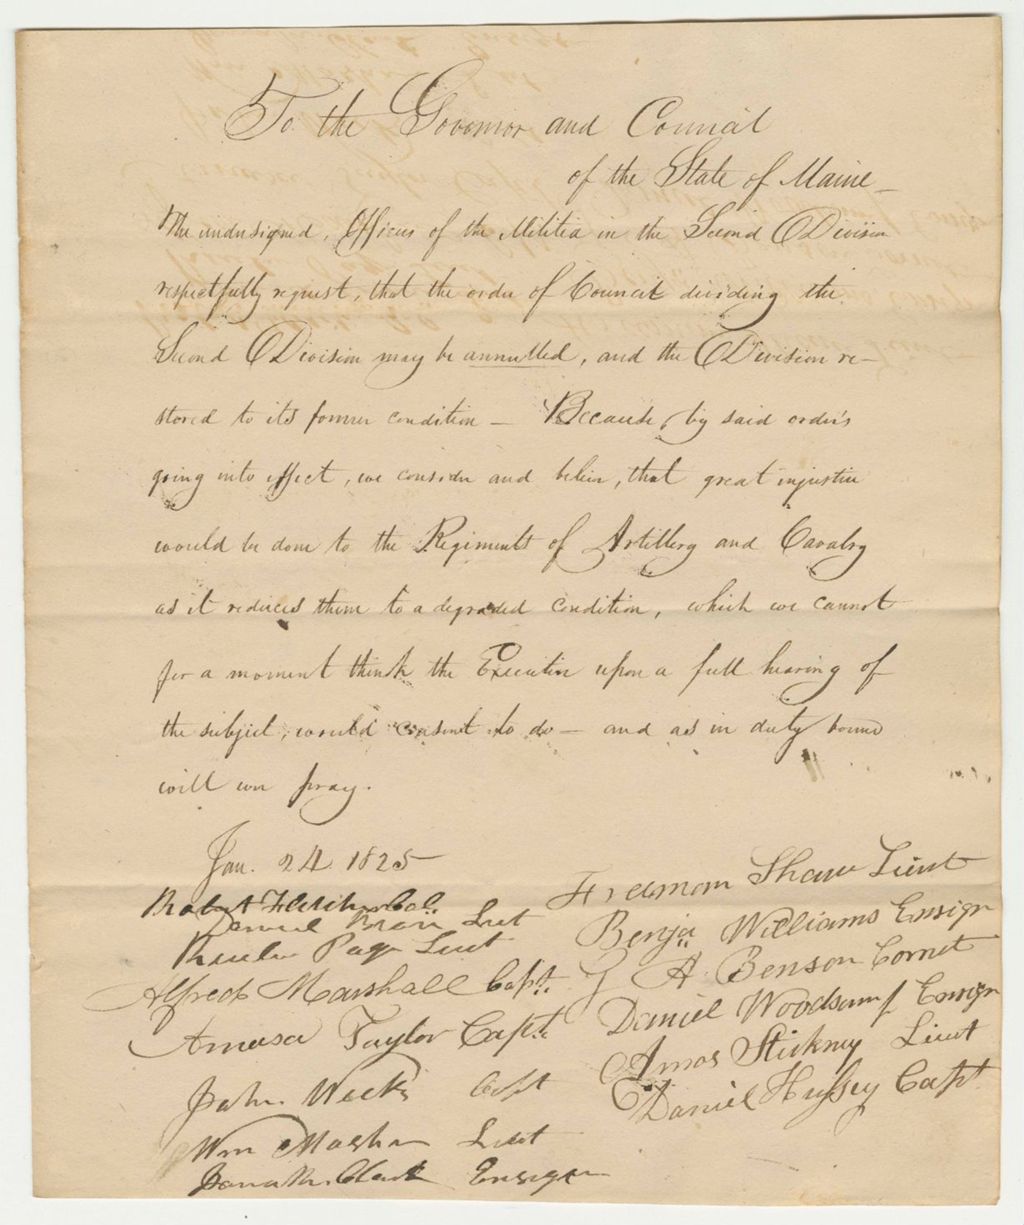 To the Governor and Council
of the State of Maine —
The undersigned, Officers of the Militia in the Second Division
respectfully request, that the order of Council dividing the
Second Division may be annulled, and the Division re-
stored to its former condition — Because, by said order's
going into effect, we consider and believe, that great injustice
would be done to the Regiments of Artillery and Cavalry
as it reduces them to a degraded condition, which we cannot
for a moment think the Executive upon a full hearing of
the subject, would consent to do — and as in duty bound
will ever pray.
Jan. 24 1825
Robert Fletcher Col.
Daniel Lieut
Reuben Page Lieut
Alfred Marshall Capt.
Amasa Taylor Capt.
John Weeks Capt
Wm Lieut
Jonathan Clark Ensign
Freemom Shaw Lieut
Benja Williams Ensign
H. Benson Cornet
Daniel Woodsum Ensign
Amos Stickney Lieut
Daniel Hussey Capt